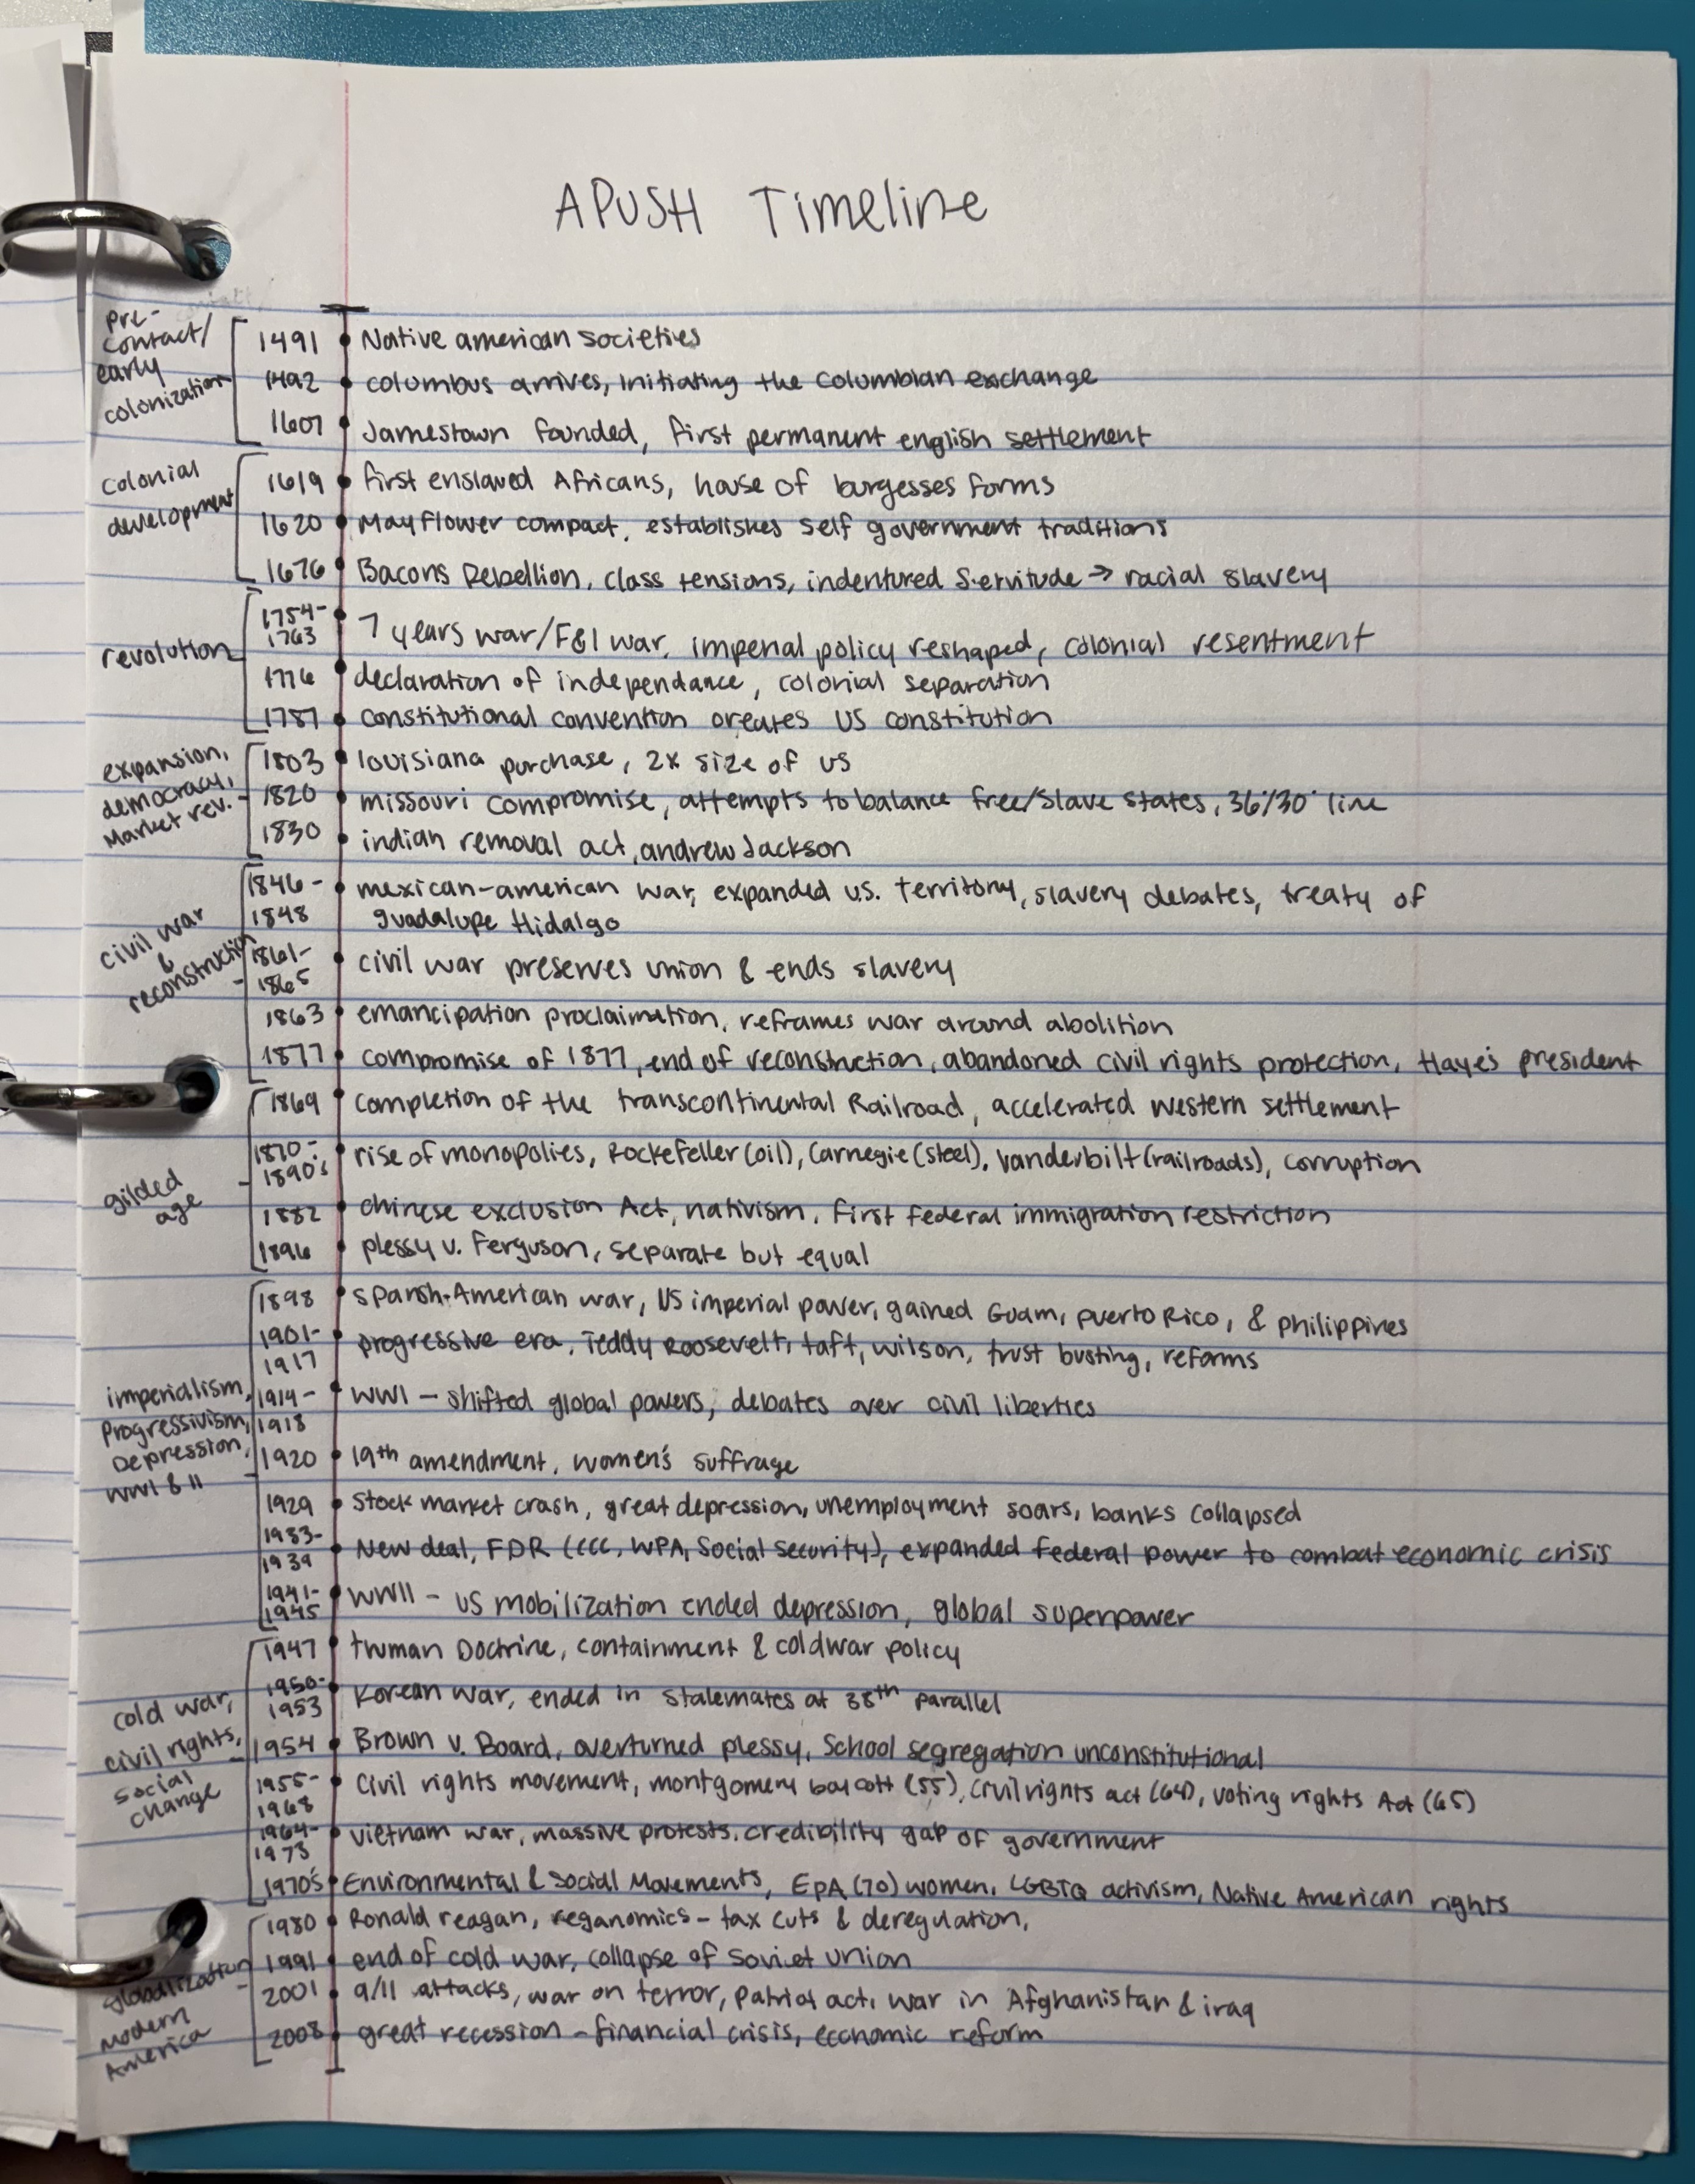 APUSH Timeline
pre-
contact/
early
colonization
1491 Native american societies
1492 columbus arrives, initiating the columbian exchange
1607 Jamestown founded, first permanent english settlement
colonial
development
1619 first enslaved Africans, house of burgesses forms
1620 Mayflower compact, establishes self government traditions
1676 Bacons Rebellion, class tensions, indentured servitude → racial slavery
revolution
1754-
1763 7 years war/F&I war, imperial policy reshaped, colonial resentment
1776 declaration of independance, colonial separation
1787 constitutional convention creates US constitution
expansion,
democracy,
Market rev.
1803 louisiana purchase, 2x size of us
1820 missouri compromise, attempts to balance free/slave states, 36°/30° line
1830 indian removal act, andrew Jackson
civil war
&
reconstruction
1846-
1848 mexican-american war, expanded u.s. territory, slavery debates, treaty of
guadalupe Hidalgo
1861-
1865 civil war preserves union & ends slavery
1863 emancipation proclaimation, reframes war around abolition
1877 compromise of 1877, end of reconstruction, abandoned civil rights protection, Hayes president
gilded
age
1869 completion of the transcontinental Railroad, accelerated western settlement
1870-
1890's rise of monopolies, Rockefeller (oil), Carnegie (steel), Vanderbilt (railroads), corruption
1882 chinese exclusion Act, nativism, first federal immigration restriction
1896 plessy v. Ferguson, separate but equal
imperialism,
Progressivism,
Depression,
WWI & II
1898 spanish-American war, US imperial power, gained Guam, puerto Rico, & philippines
1901-
1917 progressive era, Teddy Roosevelt, taft, wilson, trust busting, reforms
1914-
1918 WWI - shifted global powers, debates over civil liberties
1920 19th amendment, women's suffrage
1929 stock market crash, great depression, unemployment soars, banks collapsed
1933-
1939 New deal, FDR (CCC, WPA, Social security), expanded federal power to combat economic crisis
1941-
1945 WWII - US mobilization ended depression, global superpower
cold war,
civil rights,
social
change
1947 truman Doctrine, containment & coldwar policy
1950-
1953 Korean War, ended in stalemates at 38th parallel
1954 Brown v. Board, overturned plessy, school segregation unconstitutional
1955-
1968 Civil rights movement, montgomery boycott (55), civil rights act (64), voting rights Act (65)
1964-
1973 vietnam war, massive protests, credibility gap of government
1970's Environmental & Social Movements, EPA (70) women, LGBTQ activism, Native American rights
globalization
modern
America
1980 Ronald reagan, reganomics - tax cuts & deregulation,
1991 end of cold war, collapse of soviet union
2001 9/11 attacks, war on terror, patriot act, war in Afghanistan & iraq
2008 great recession - financial crisis, economic reform